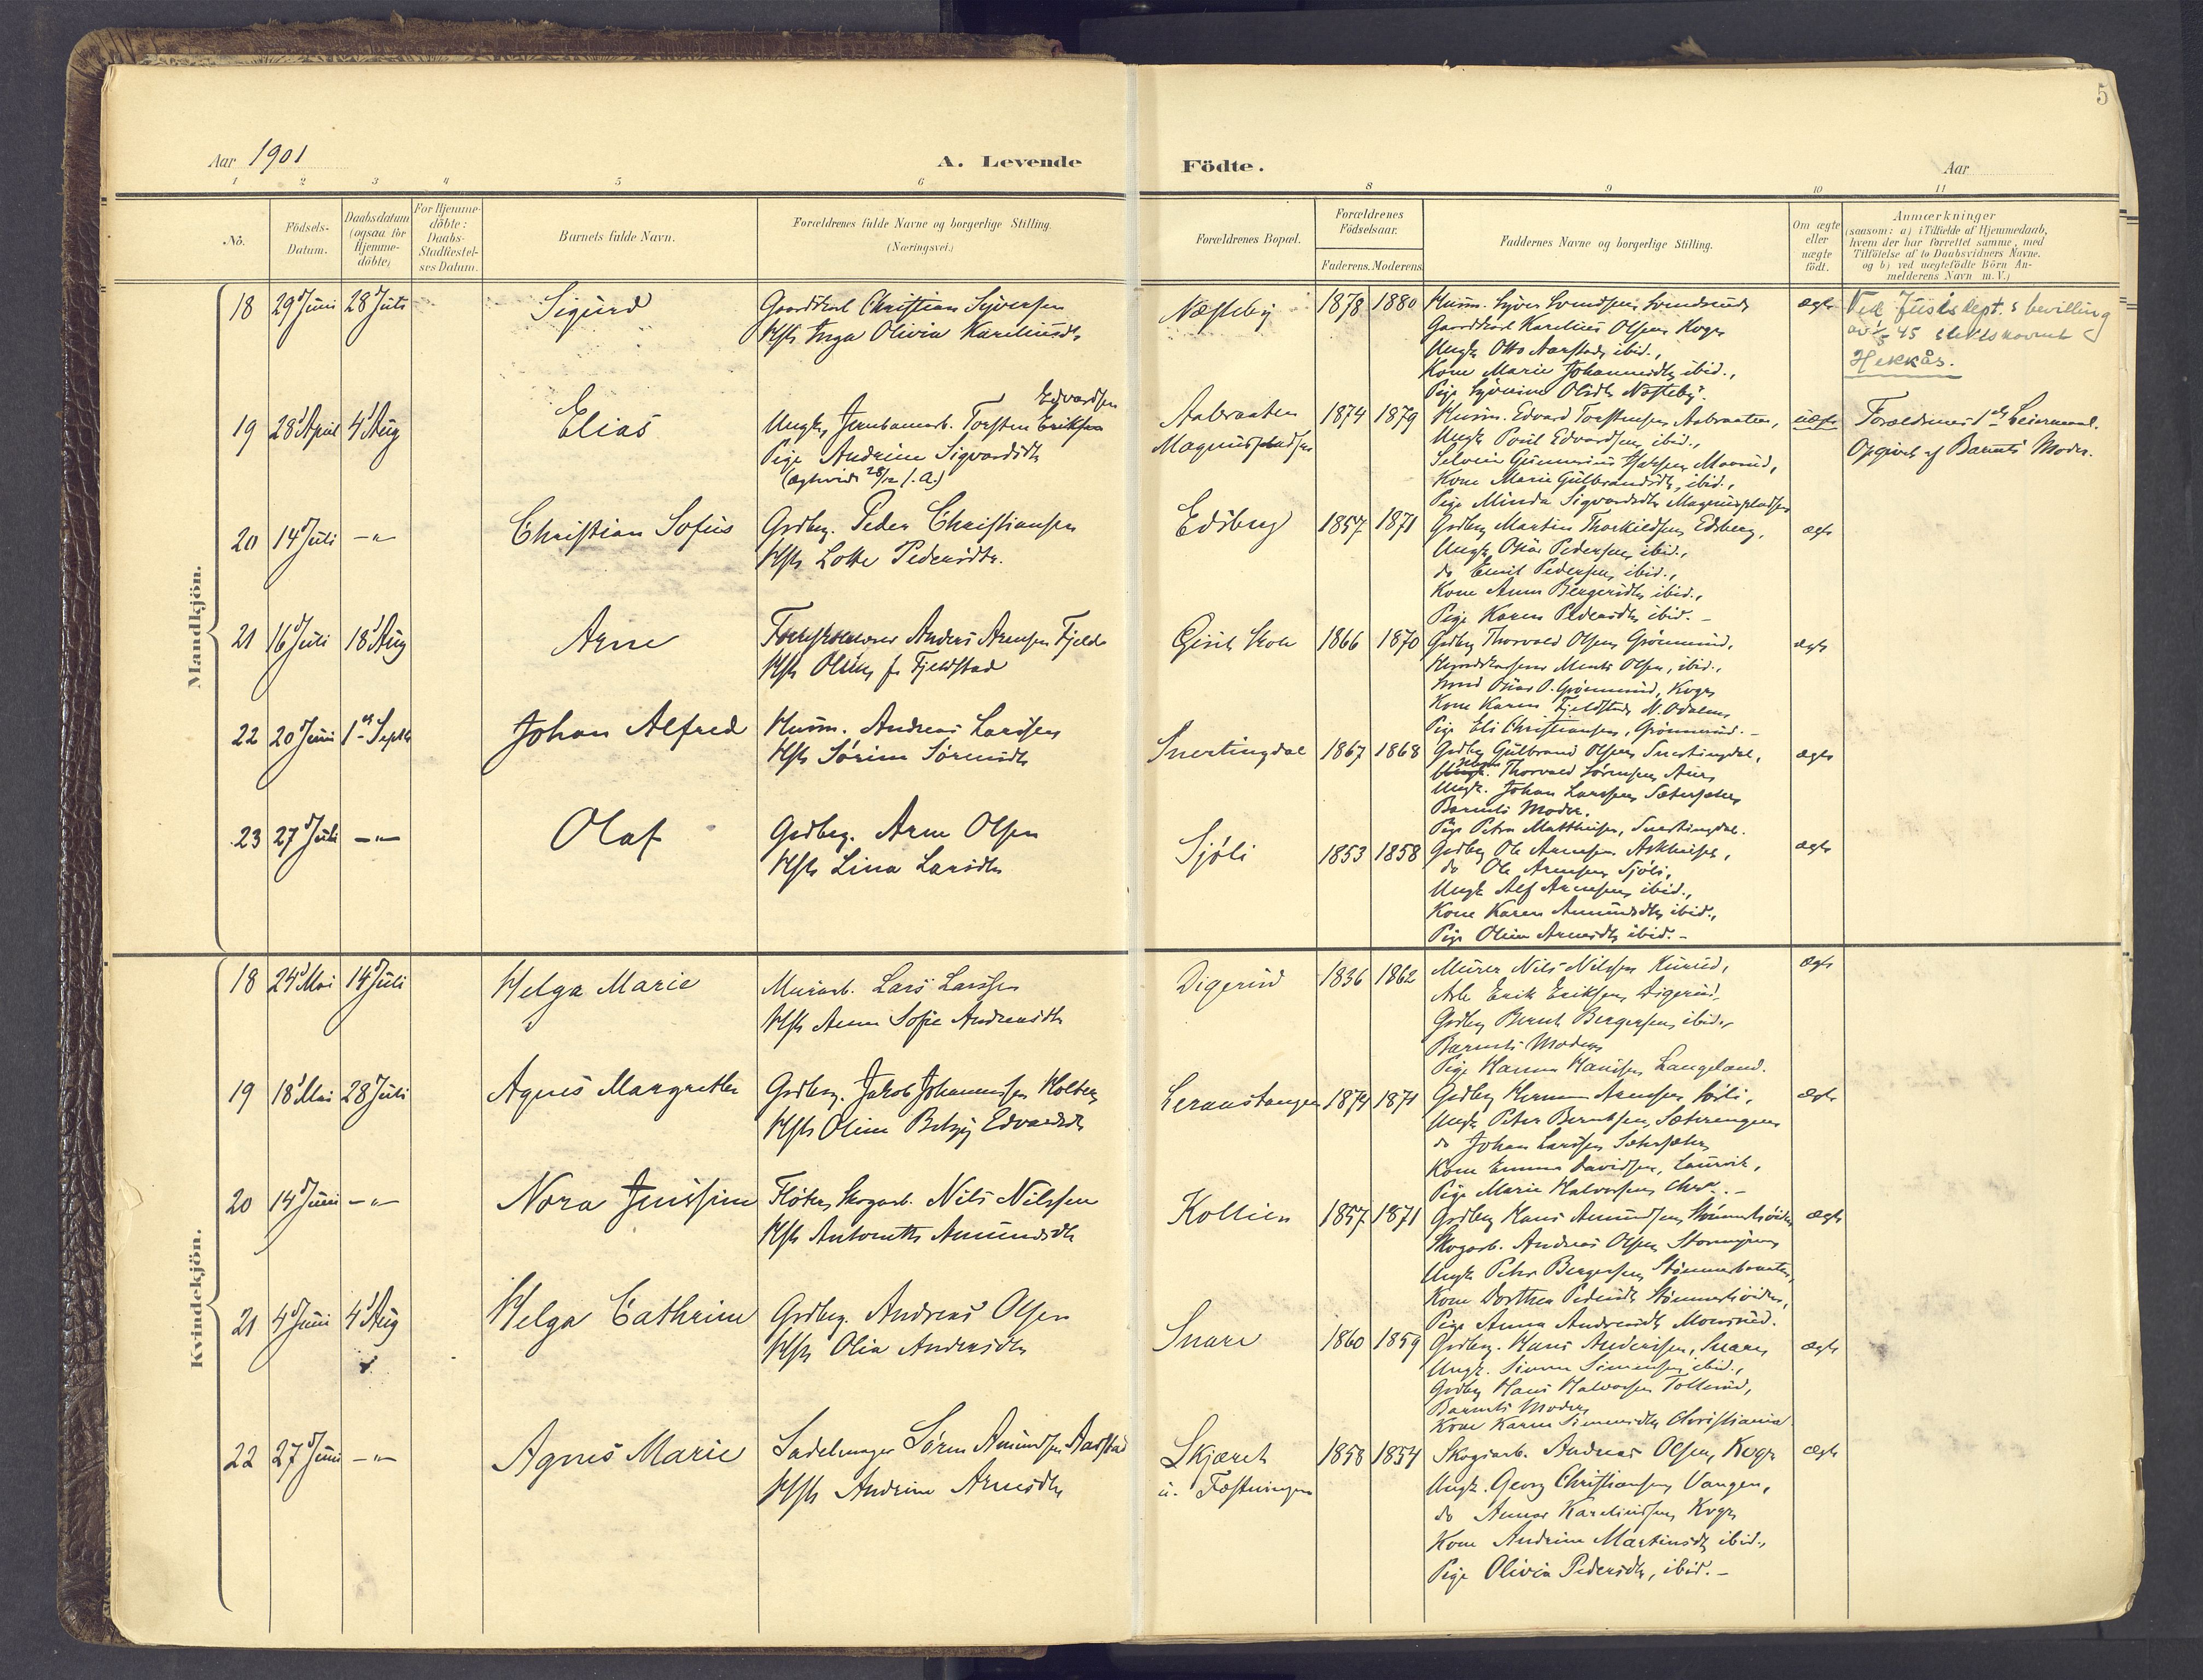 5
Aar 1901
A. Levende Födte.
Aar
1 2 3 4 5 6 8 9 10 11
No.
Födsels-Datum.
Daabsdatum (ogsaa for Hjemme-döbte)
For Hjemme-döbte: Daabs-Stadfæstel-ses Datum.
Barnets fulde Navn.
Forældrenes fulde Navne og borgerlige Stilling.
(Næringsvei.)
Forældrenes Bopæl.
Forældrenes Födselsaar.
Faderens. Moderens.
Faddernes Navne og borgerlige Stilling.
Om ægte eller uægte födt.
Anmærkninger
(saasom: a) i Tilfælde af Hjemmedaab, hvem der har forrettet samme, med Tilföielse af to Daabsvidners Navne. og b) ved uægtefödte Börn An-melderens Navn m. V.)
Mandkjön.
18 29 Juni 28 Juli Sigurd
Gaardkarl Christian Syversen
Hst Inga Olivia Kareliusdt
Næsteby 1878 1880
Husm. Syver Svendsen, Svendsrud
Gaardkarl Karelius Olsen, Kogr
Ungk. Otto Aarstad, ibid.,
Kone Marie Johannesdt, ibid.,
Pige Syverine Olsdt Næsteby.
ægte
Ved Justisdept.s bevilling
av 1/5 45 slektsnavnet
Hekkås.
19 28 April 4 Aug Elias
Edvardsen
Ungk, Jernbanearb. Torsten Eriksen
Pige Andrine Sigvardsdt
Aabraaten
Magnuspladsen
1874 1879
Husm. Edvard Torstensen, Aabraaten,
Ungk Poul Edvardsen, ibid.,
Kone Marie Gulbrandsdt, ibid.,
Pige Minda Sigvardsdt Magnuspladsen
uægte
Forældrenes 1ste Leiermaal.
Opgivet af Barnets Moder.
20 14 Juli -"- Christian Sofus
Grdbrg. Peder Christiansen
Hst Lotte Pedersdtr.
Edsberg 1857 1871
Grdbrg Martin Thorkildsen, Edsberg,
Ungk Oskar Pedersen, ibid.,
do Emil Pedersen, ibid.,
Kone Anna Bergersdt, ibid.,
Pige Karen Pedersdt ibid. -
ægte
21 16 Juli 18 Aug Arne
Anders Arnesen Fjelde
Hst f. Fjeldstad
1866 1870
Grdbrg Thorvald Olsen,
Olsen, ibid.,
Kone Karen Fjeldstad, N. Odalen,
Pige Eli Christiansen,
ægte
22 20 Juni 1ste Septbr Johan Alfred
Husm. Andreas Larssen
Hst Sörine Sörensdt
Snertingdal 1867 1868
Grdbrg Gulbrand Olsen Snertingdal,
Thorvald Sörensen, Aur,
Ungk. Johan Larssen, Sætersæter
Barnets Moder,
Pige Petra Matthisen, Snertingdal.
ægte
23 27 Juli -"- Olaf
Grdbrg. Arne Olsen
Hst Lina Larsdt
Sjöli 1853 1858
Grdbrg Ole Arnesen
do Ole Arnesen Sjöli,
Ungk Alf Arnesen, ibid.,
Kone Karen Amundsdt, ibid.,
Pige Oline Arnesdt, ibid. -
ægte
Kvindekjön.
18 24 Mai 14 Juli Helga Marie
Murarb. Lars Larssen
Hst Anne Sofie Andreasdt
Digerud 1836 1862
Murer Nils Nilssen Kurud,
Arb Erik Eriksen, Digerud,
Grdbrg Bernt Bergersen, ibid.,
Barnets Moder
Pige Hanna Hansen Langeland.
ægte
19 18 Mai 28 Juli Agnes Margrethe
Grdbrg. Jakob Johannesen Holter
Hst Oline Betzy Edvardsdt
Leraustangen 1874 1871
Grdbrg Herman Arnesen Sjöli,
Ungk Peter Berntsen, Sæterengen
do Johan Larssen Sætersæter
Kone Emma Davidsen, Laurvik,
Pige Marie Halvorsen, Chra. -
ægte
20 14 Juni -"- Nora Jussine
Flöter, Skogarb. Nils Nilssen
Hst Antonette Amundsdt
Kollien 1857 1871
Grdbrg Hans Amundsen,
Skogarb. Andreas Olsen Stormyren
Ungk Peter Bergersen,
Kone Dorthea Pedersdt
Pige Anna Andreasdt
ægte
21 4 Juni 4 Aug Helga Cathrine
Grdbrg. Andreas Olsen
Hst Olia Andersdt
Snare 1860 1859
Grdbrg. Hans Andersen, Snare,
Ungk. Simen Simensen, ibid.,
Grdbrg Hans Halvorsen Tollerud,
Barnets Moder,
Kone Karen Simensdt, Christiania
ægte
22 27 Juni -"- Agnes Marie
Sadelmager Sören Amundsen Aarstad
Hst Andrine Arnesdt
Skjæret
u. Fæstningen
1858 1854
Skogsarb. Andreas Olsen, Kogr
Ungk. Georg Christiansen, Vangen,
do Annar Kareliussen, Kogr
Kone Andrine Martinsdt, ibid.,
Pige Olivia Pedersdt, ibid. -
ægte